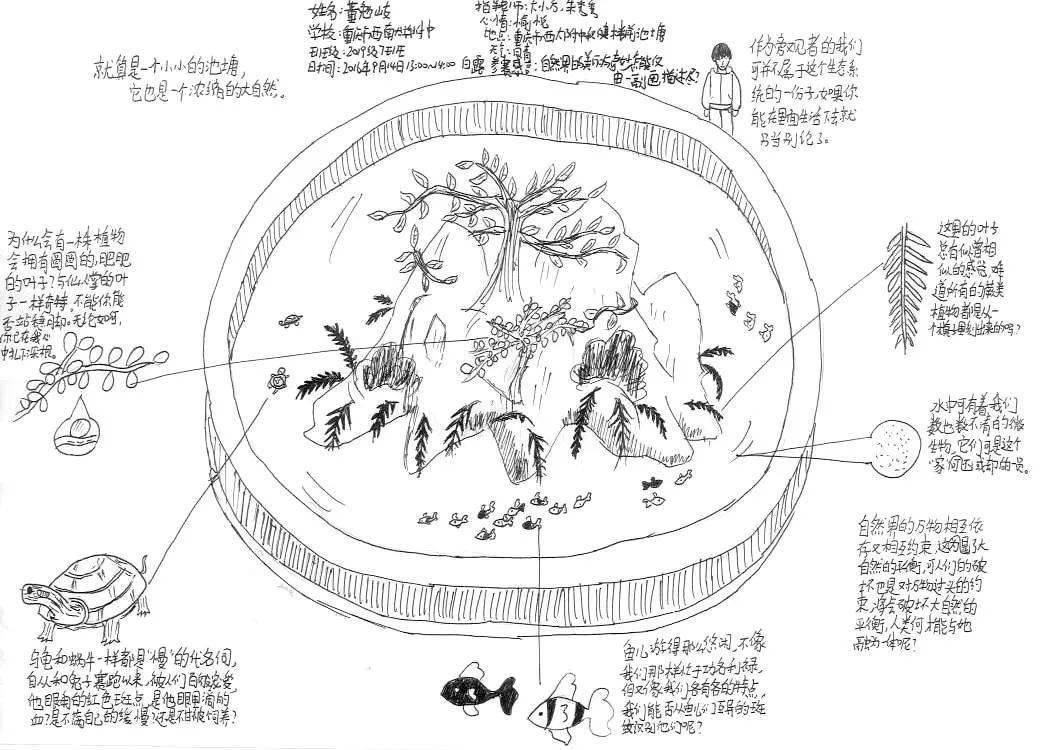 姓名:董勉岐
学校:重庆市西南大学附中
班级:2019级7班
日时间:2016年9月14日13:00~14:00 白露
心情:愉悦
由一副画描述?
就算是一个小小的池塘,
它也是一个浓缩的大自然。
作为旁观者的我们
可并不属于这个生态系
统的一份子,如果你
能在里面生活下去就
另当别论了。
为什么会有一株植物
会拥有圆圆的,肥肥
的叶子?与仙人掌的叶
子一样奇特,不能你能
否站稳脚。无论如何,
你已在我心
中扎下深根。
这里的叶子
总有似曾相
似的感觉,难
道所有的蕨类
植物都是从一
个模子里刻出来的吗?
水中可有着我们
数也数不清的微
生物。它们可是这个
家何不或却的一员。
自然界的万物相互依
存又相互约束,这为
自然的平衡,可人们的破
坏也是对万物过头的约
束,将会破坏大自然的
平衡,人类何才能与她
融为一体呢?
乌龟和蜗牛一样都是“慢”的代名词,
自从和兔子赛跑以来,被人们百般宠爱,
他眼角的红色斑点,是他眼里滴的
血?是不满自己的缓慢?还是不甘被饲养?
鱼儿游得那么悠闲,不像
我们那样忙于功名利禄,
但又像我们各有各的特点,
我们能否从鱼儿们各异的斑
纹识别他们呢?